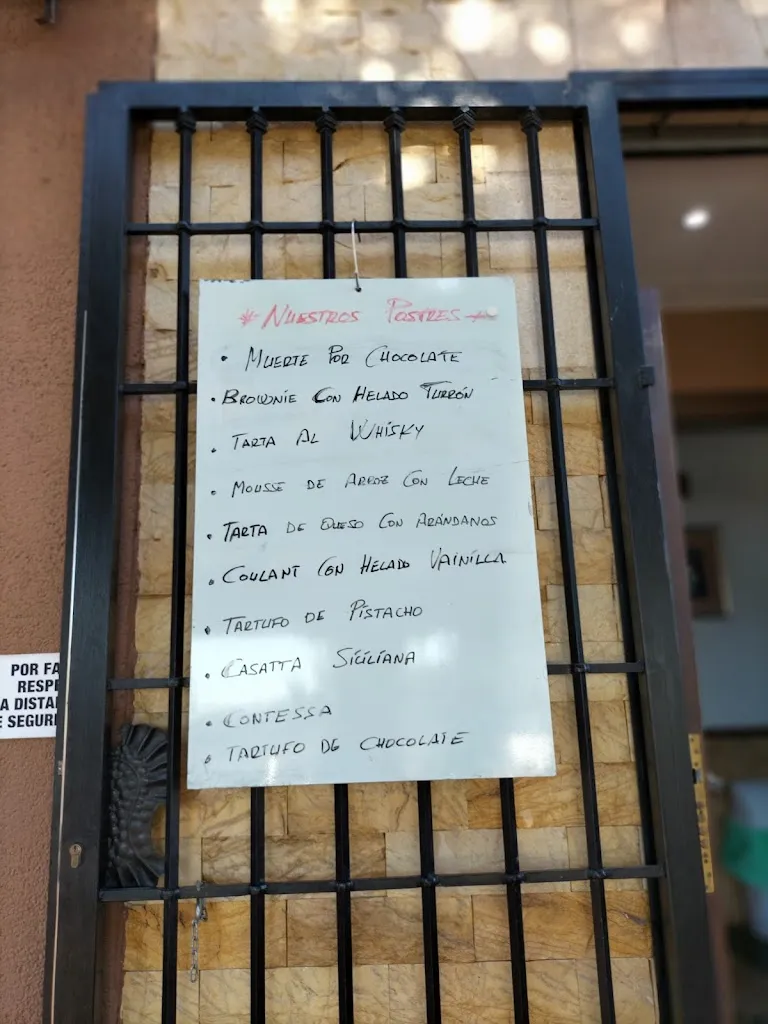 * NUESTROS POSTRES *
• MUERTE POR CHOCOLATE
• BROWNIE CON HELADO TURRÓN
• TARTA AL WHISKY
• MOUSSE DE ARROZ CON LECHE
• TARTA DE QUESO CON ARÁNDANOS
• COULANT CON HELADO VAINILLA
• TARTUFO DE PISTACHO
• CASATTA SICILIANA
• CONTESSA
• TARTUFO DE CHOCOLATE
POR FA
RESPE
A DISTAN
E SEGURI